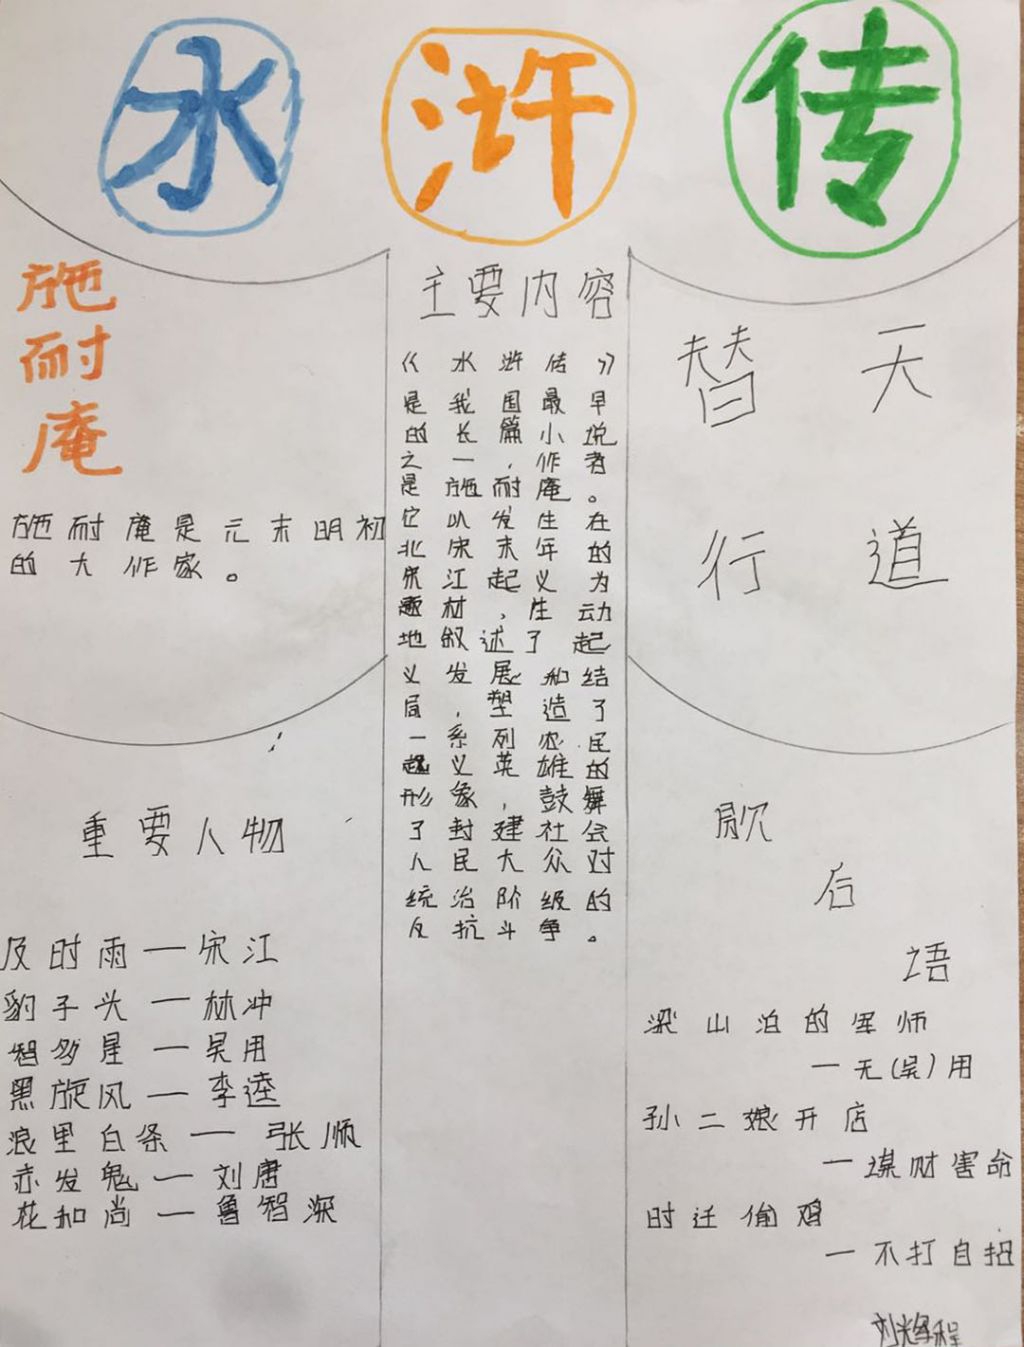 水浒传
施
耐
庵
施耐庵是元末明初
的大作家。
主要内容
《水浒传》
是我国最早
的长篇小说
之一，作者
是施耐庵。
它以发生在
北宋末年的
宋江起义为
题材，生动
地叙述了起
义发展和结
局，塑造了
一系列农民
起义英雄的
形象，鼓舞
了封建社会
人民大众对
统治阶级的
反抗斗争。
替天
行道
重要人物
及时雨—宋江
豹子头—林冲
智多星—吴用
黑旋风—李逵
浪里白条—张顺
赤发鬼—刘唐
花和尚—鲁智深
歇
后
语
梁山泊的军师
—无(吴)用
孙二娘开店
—谋财害命
时迁偷鸡
—不打自招